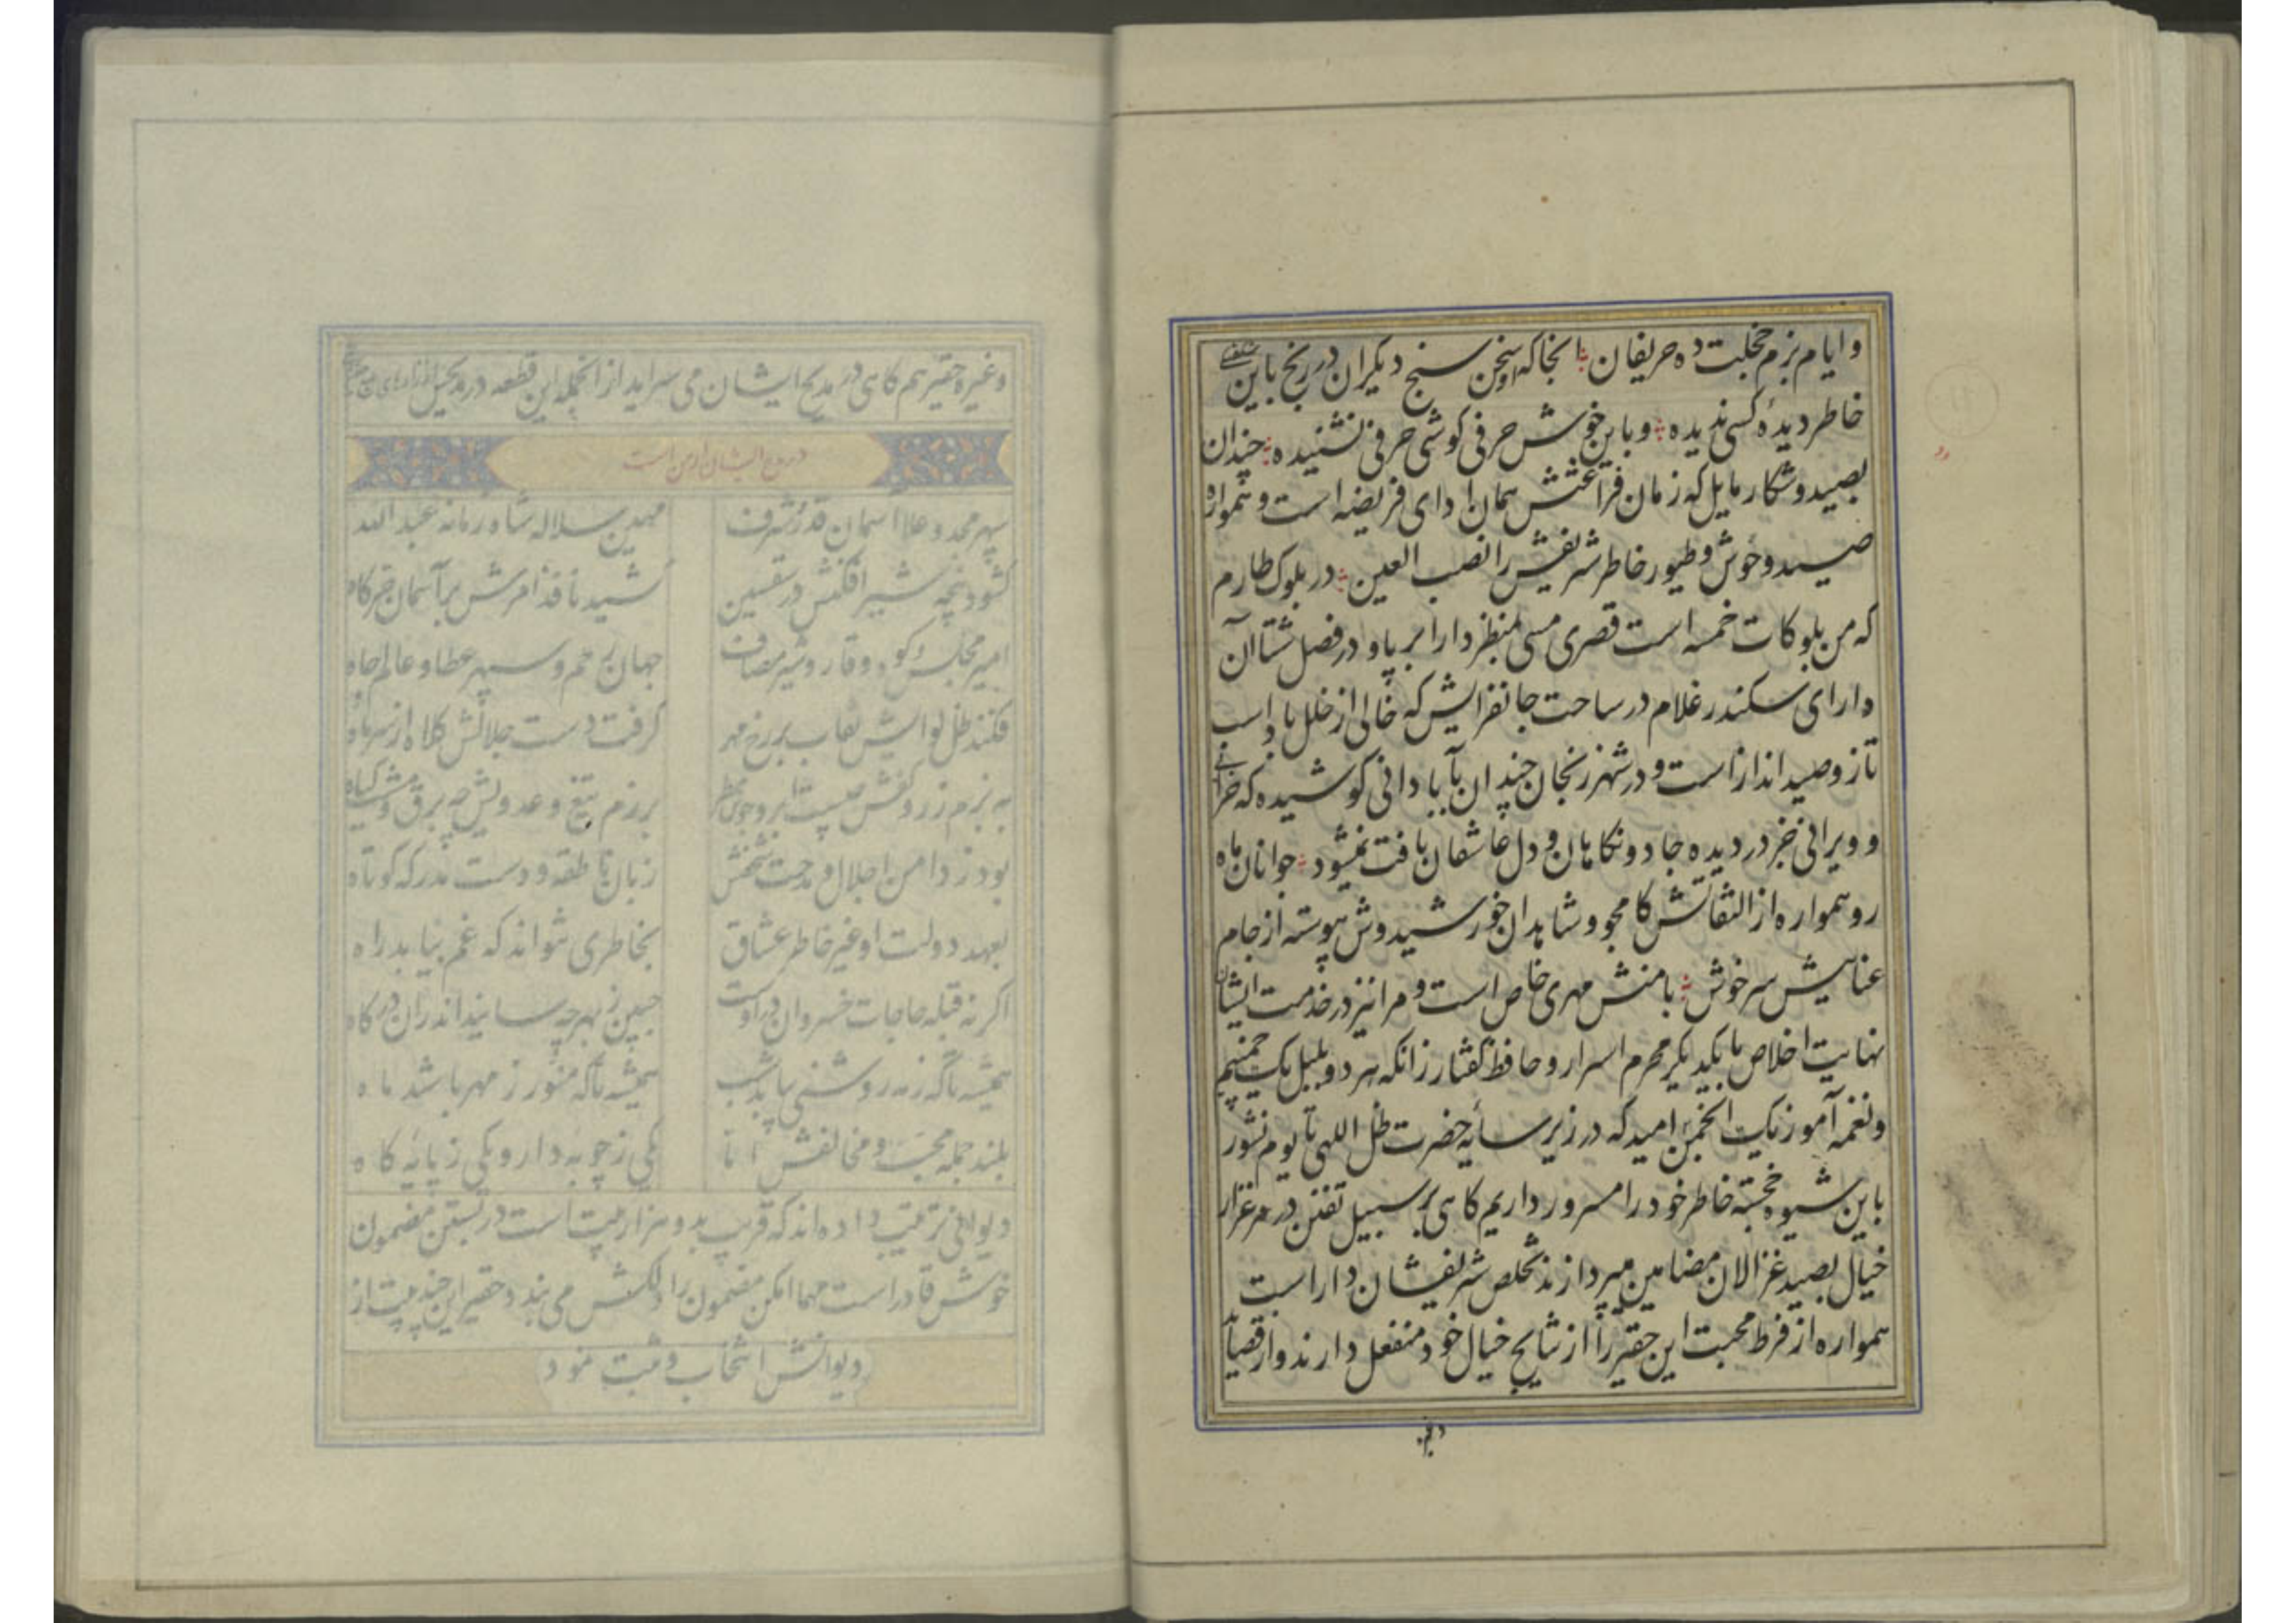 و ایام بزم خجلت ده حریفان آنجا که او سخن سنج دیگران در رنج باین شکفته
خاطر دیدهٔ کسی ندیده و باین خوش حرفی گوشی حرفی نشنیده چندان
بصید و شکار مایل که زمان فراغتش همان ادای فریضه است و همواره
صید وحوش و طیور خاطر شریفش را نصب العین در بلوک طارم
که من بلوکات خمسه است قصری مسی بمنظر دارا بر پا و در فصل شتا آن
دارای سکندر غلام در ساحت جانفزایش که خالی از خلل با داسب
تاز و صید انداز است و در شهر زنجان چندان بآبادانی کوشیده که خرابی
و ویرانی جز در دیده جادو نکاهان و دل عاشقان یافت نمیشود جوانان ماه
رو همواره از التفاتش کامجو و شاهدان خورشیدوش پیوسته از جام
عنایتش سرخوش با منش مهری خاص است و مرا نیز در خدمت ایشان
نهایت اخلاص با یکدیگر محرم اسرار و حافظ گفتار زانکه هر دو بلبل یک چمنیم
و نغمه آموز یک انجمن امید که در زیر سایه حضرت ظل اللهی تا یوم نشور
باین شیوه خجسته خاطر خود را مسرور داریم کاهی بر سبیل تفنن در مرغزار
خیال بصید غزالان مضامین میپردازند تخلص شریفشان دارا است
همواره از فرط محبت این حقیر را از نتایج خیال خود منفعل دارند و از قصاید
و غیره حقیر هم کاهی در مدیح ایشان می سراید از آنجمله این قطعه در مدیحش
در مدح ایشان است
سپهر مجد و علا آسمان قدر و شرف مهین سلاله شاه زمانه عبد الله
گشود پنجه شیر افکنش در تسعین کشید نافذ امرش بر آسمان خرکاه
امیر مجلس و کوه وقار و شیر مصاف جهان حزم و سپهر عطا و عالم جاه
فکند ظل لوایش نقاب بر رخ مهر گرفت دست جلالش کلاه از سر ماه
به بزم زر و کفش چیست ابر و برزم تیغ و عدویش چه برق و مشت گیاه
بود ز دامن اجلال و مدحت شخصش زبان ناطقه و دست مدرکه کوتاه
بعهد دولت او غیر خاطر عشاق بخاطری نتواند که غم بیابد راه
اگر نه قبله حاجات خسروان در اوست جبین ز بهر چه سایند اندران درگاه
همیشه تا که ز مه روشنی بیابد شب همیشه تا که منور ز مهر باشد ماه
بلند جمله محب و مخالفش اما یکی ز چوبه دار و یکی ز پایه گاه
دیوانی ترتیب داده اند که قریب بدو هزار بیت است در بستن مضمون
خوش قادر است مهما امکن مضمون را دلکش می بندد حقیر این چند بیت از
دیوانش انتخاب و ثبت نمود